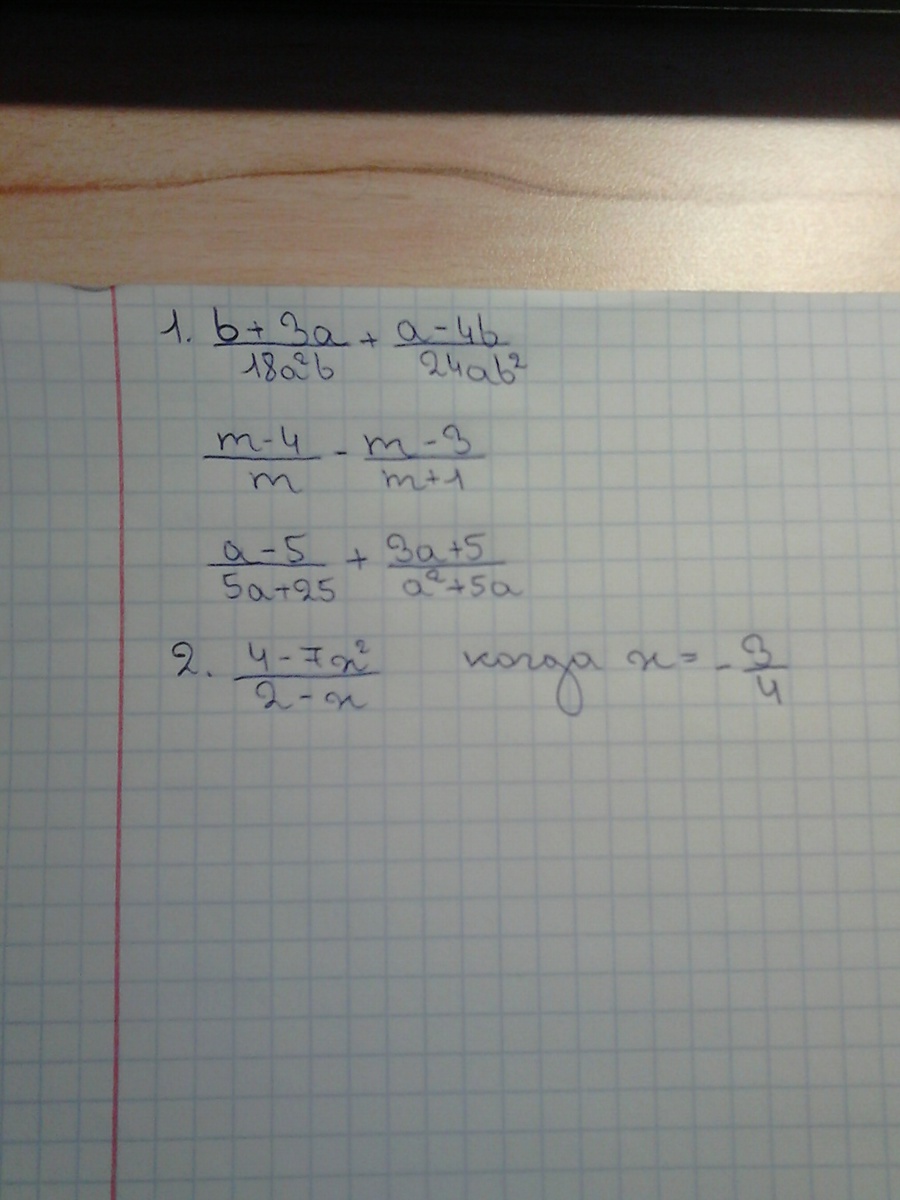 1. (b+3a)/(18a²b) + (a-4b)/(24ab²)
(m-4)/m - (m-3)/(m+1)
(a-5)/(5a+25) + (3a+5)/(a²+5a)
2. (4-7x²)/(2-x) когда x = -3/4